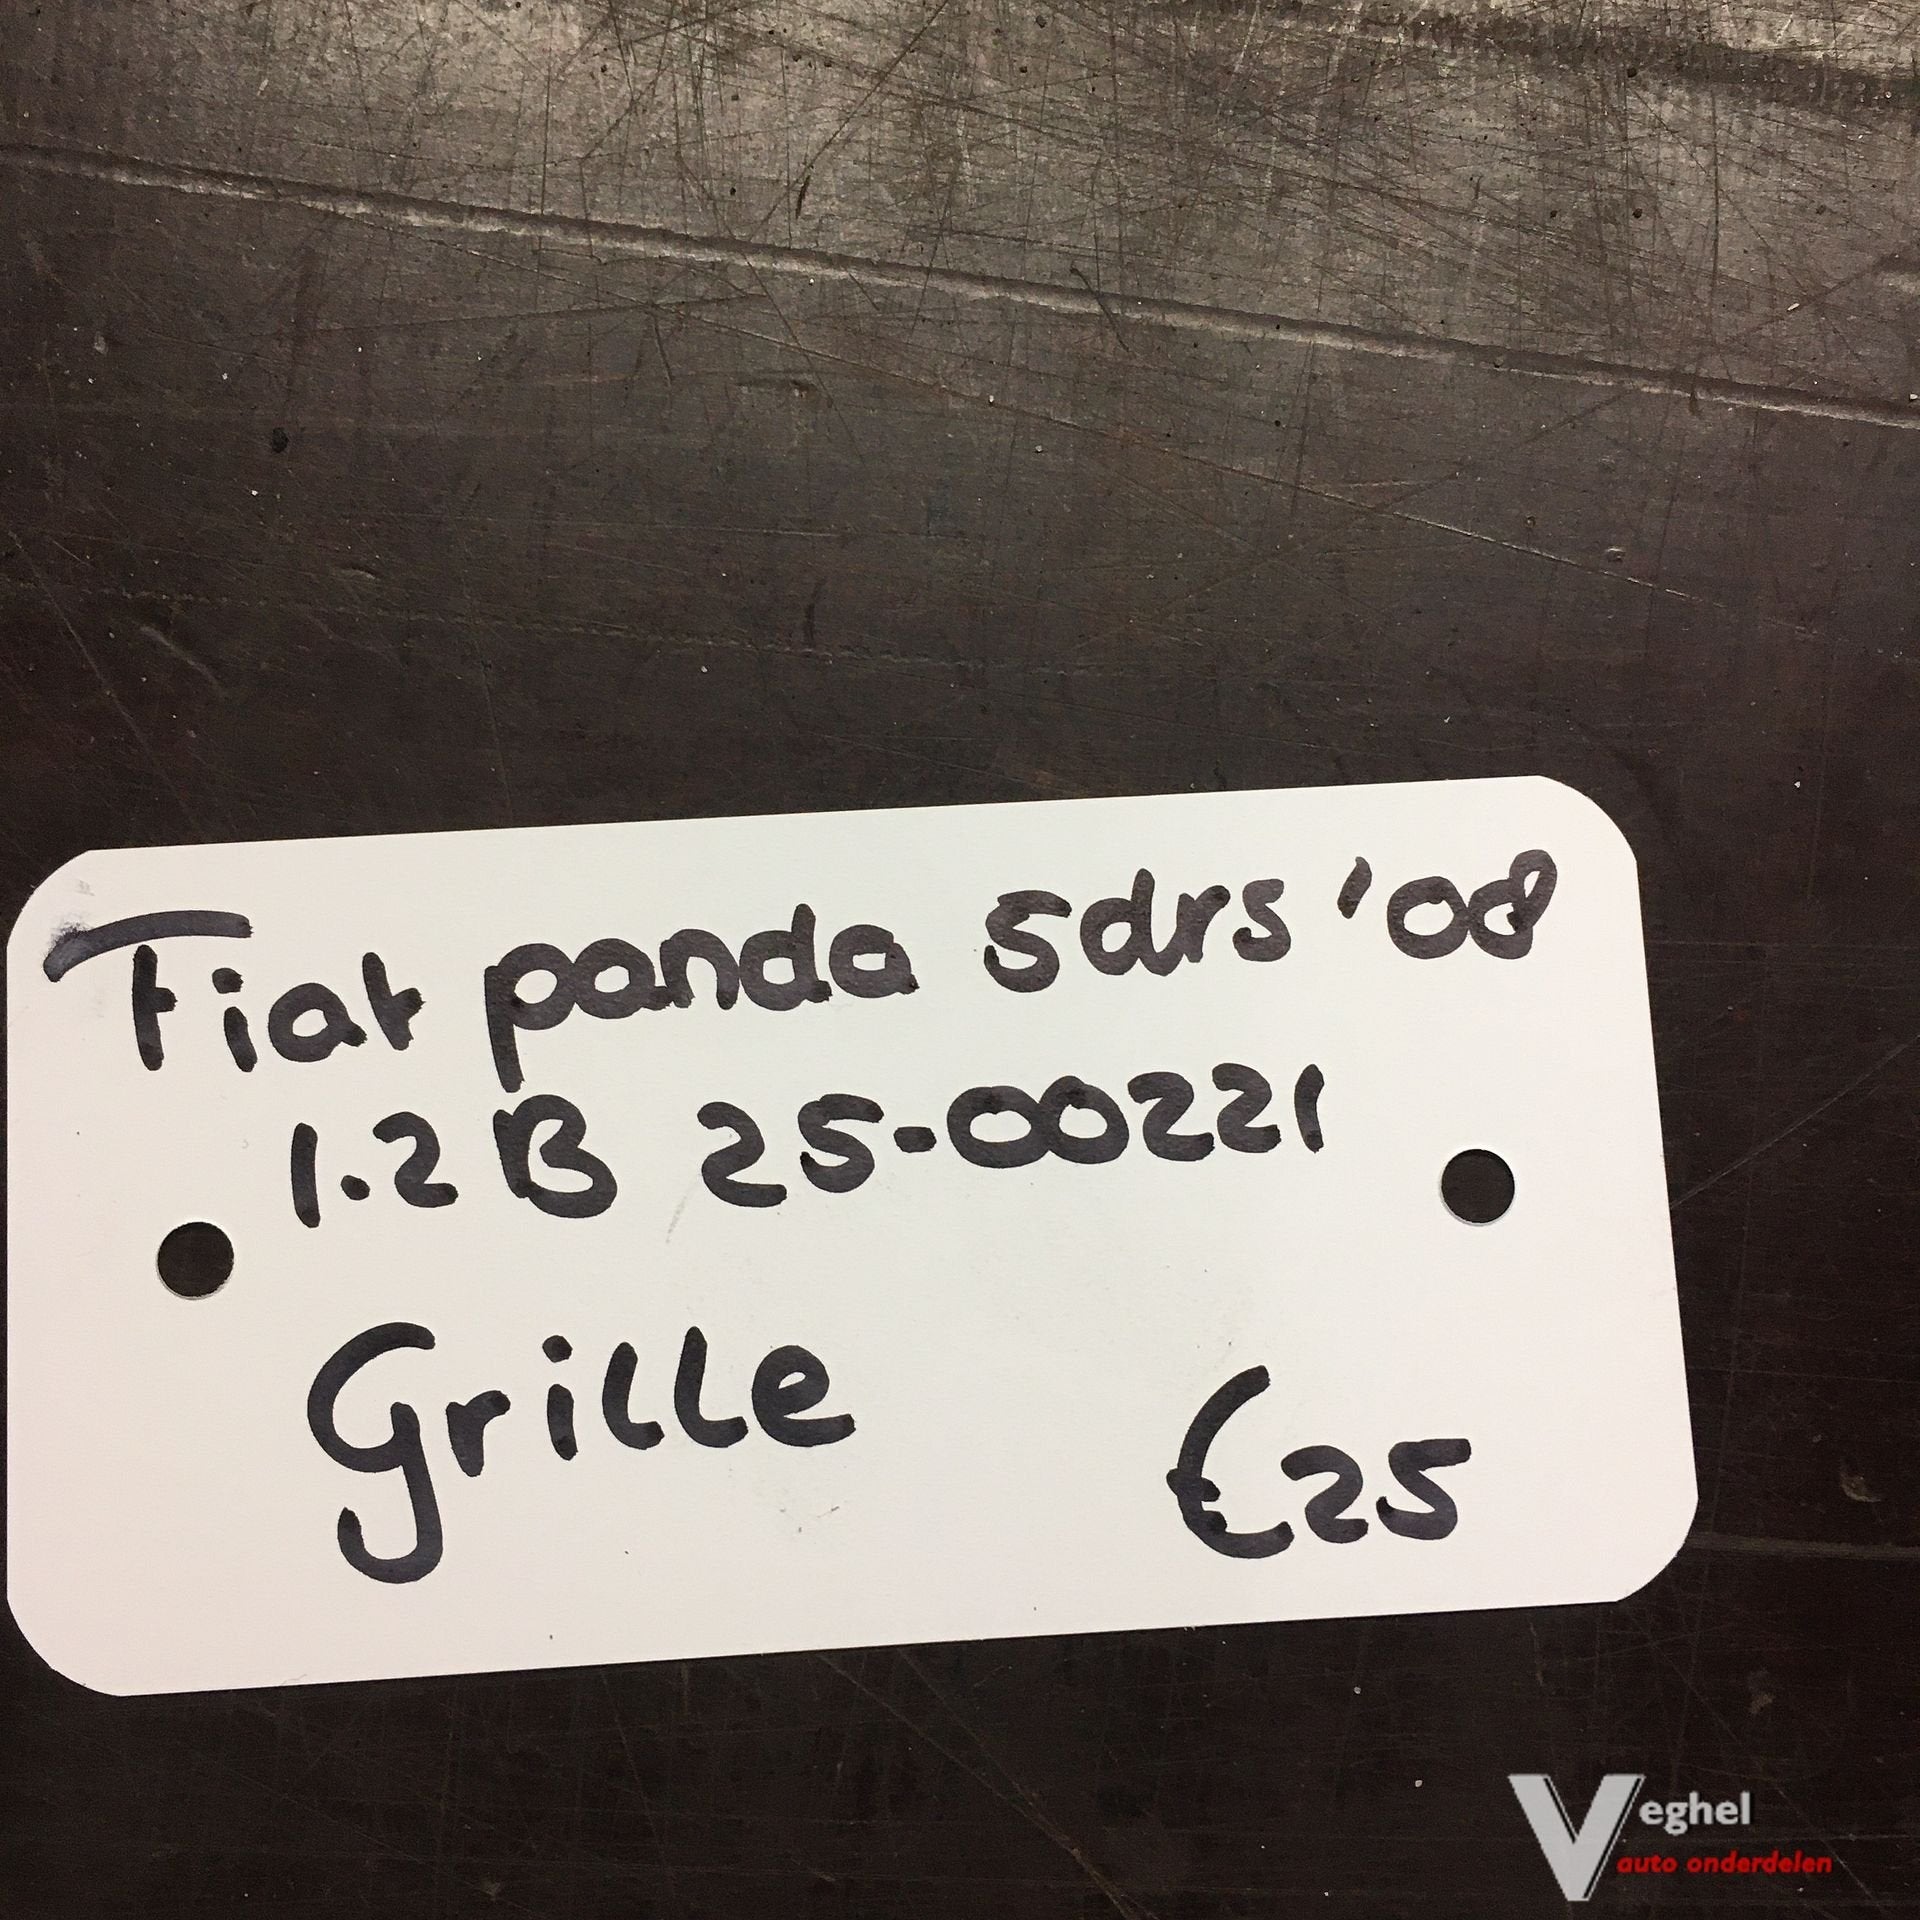 Fiat panda 5drs '08
1.2 B 25-00221
Grille €25
Veghel
auto onderdelen